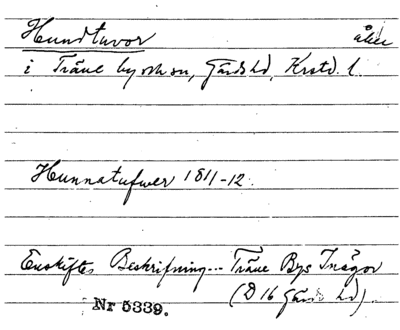 Hundtuvor åker
i Träne by och sn, Gärds hd, Krstd. l.
Hunnatufwer 1811-12.
Enskiftes Beskrifning... Träne Bys Inägor
(D 16 Gärds hd).
Nr 5339.